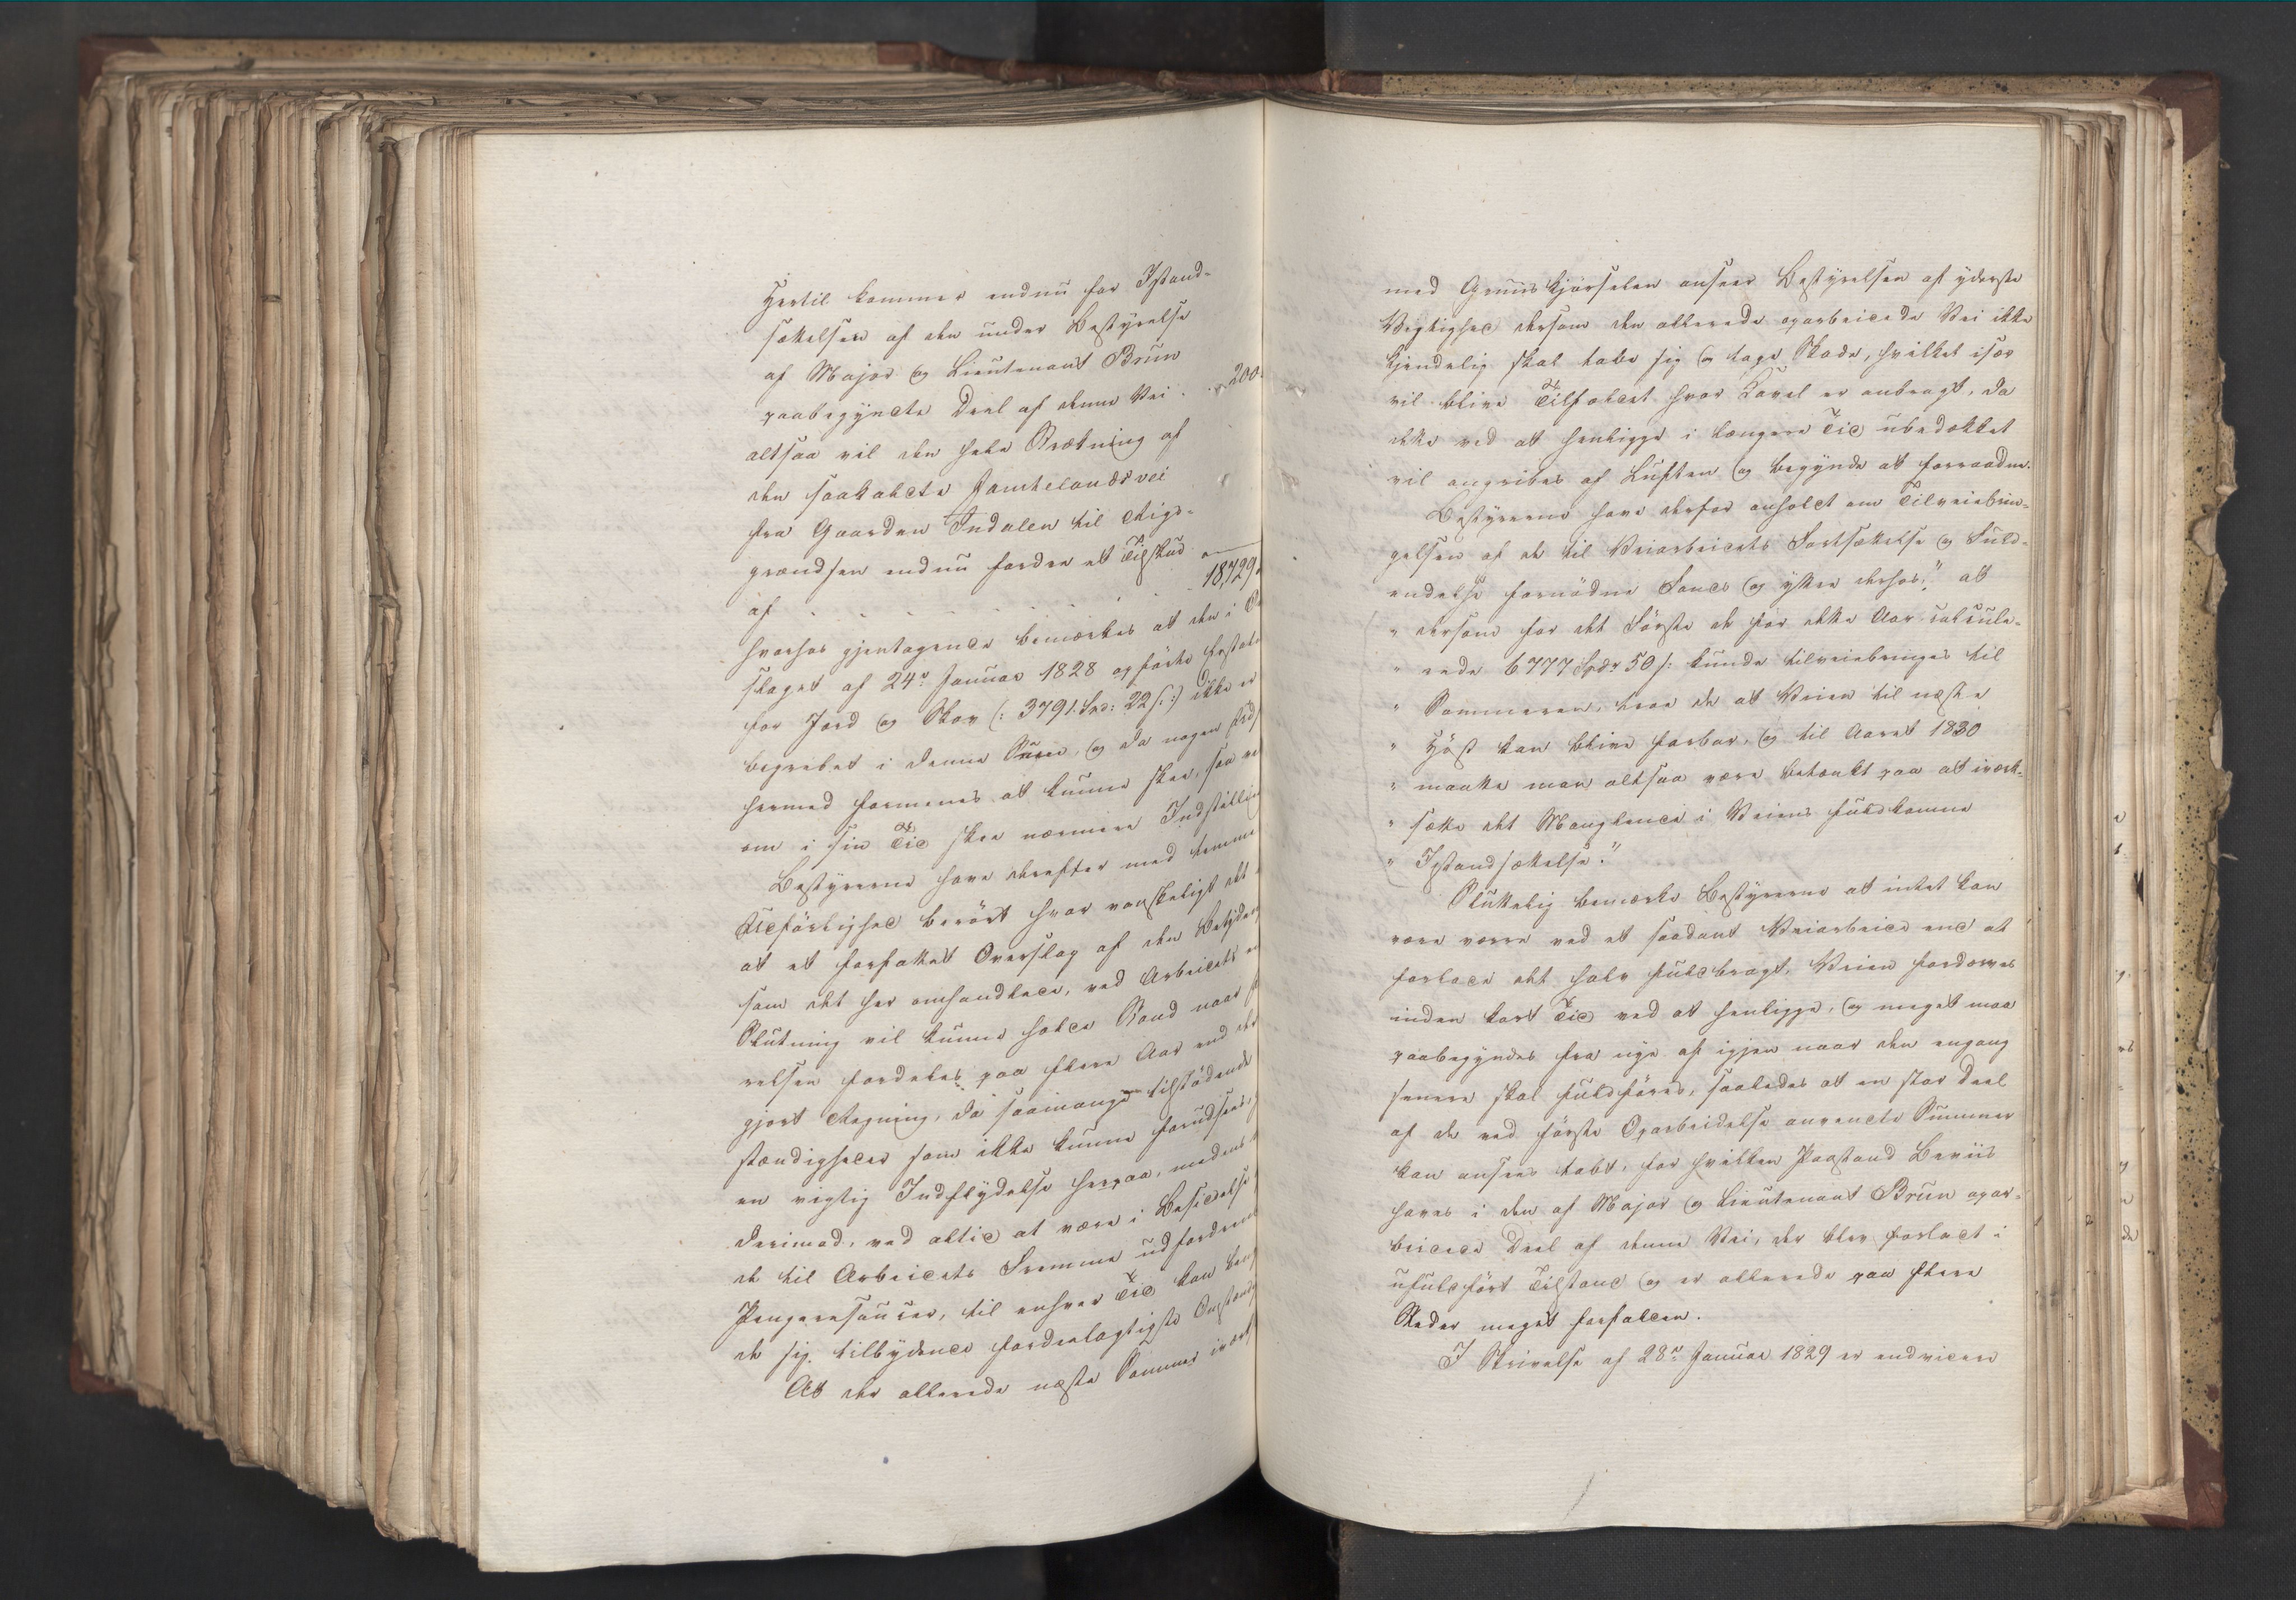 Hertil kommer endnu for Istand-
sættelsen af den under Bestyrelse
af Major og Lieutenant Brun
paabegyndte Deel af denne Vei . . 200
altsaa vil den hele Strækning af
den saakaldte Jamtelandsvei
fra Gaarden Indalen til Rigs-
grændsen endnu fordre et Tilskud
af . . . . . . 18,729
hvorhos gjentagende bemærkes at den i
slaget af 24de Januar 1828 opførte Erstat
for Jord og Skov (: 3791 Spd: 22 s:) ikke er
begrebet i denne Sum, og da nogen
hermed formenes at kunne skee, saa
om i sin Tid skee nærmere Indstilling
Bestyrerne have derefter med temme
Udførlighed berørt hvor vanskeligt det
at et forfattet Overslag af den Betyden
som det her omhandlede, ved Arbeidets
Slutning vil kunne holde Stand naar
relsen fordeles paa flere Aar end
gjort Regning, da saamange tilstødende
stændigheder som ikke kunne forudsees,
en vigtig Indflydelse herpaa, medens
derimod, ved altid at være i Besiddelse
de til Arbeidets Fremme udfordrende
Pengeressourcer, til enhver Tid kan
de sig tilbydende fordeelagtigste Omstænd
At der allerede næste Sommer
med Gruuskjørselen ansees Bestyrelsen af yderste
Vigtighed dersom den allerede oparbeidede Vei ikke
kjendelig skal tabe sig og tage Skade, hvilket især
vil blive Tilfældet hvor Kavel er anbragt, da
dette ved at henligge i længere Tid ubedækket
vil angribes af Luften og begynde at forraadne.
Bestyrerne have derfor anholdt om Tilveiebrin-
gelsen af de til Veiarbeidets Fortsættelse og Fuld-
endelse fornødne Fonds og yttre derhos, " at
" dersom for det Første de for dette Aar calcule-
" rede 6777 Spdr 50 s: kunde tilveiebringes til
" Sommeren, troe de at Veien til næste
" Høst kan blive farbar, og til Aaret 1830
" maatte man altsaa være betænkt paa at iværk-
" sætte det Manglende i Veiens fuldkomne
" Istandsættelse."
Sluttelig bemærke Bestyrerne at intet kan
være værre ved et saadant Veiarbeide end at
forlade det halv fuldbragt. Veien fordærves
inden kort Tid ved at henligge, og meget maa
paabegyndes fra nye af igjen naar den engang
senere skal fuldføres, saaledes at en stor Deel
af de ved første Oparbeidelse anvendte Summer
kan ansees tabt, for hvilken Paastand Beviis
haves i den af Major og Lieutenant Brun opar-
beidede Deel af denne Vei, der blev forladt i
ufuldført Tilstand og er allerede paa flere
Steder meget forfalden.
I Skrivelse af 28de Januar 1829 er endvidere